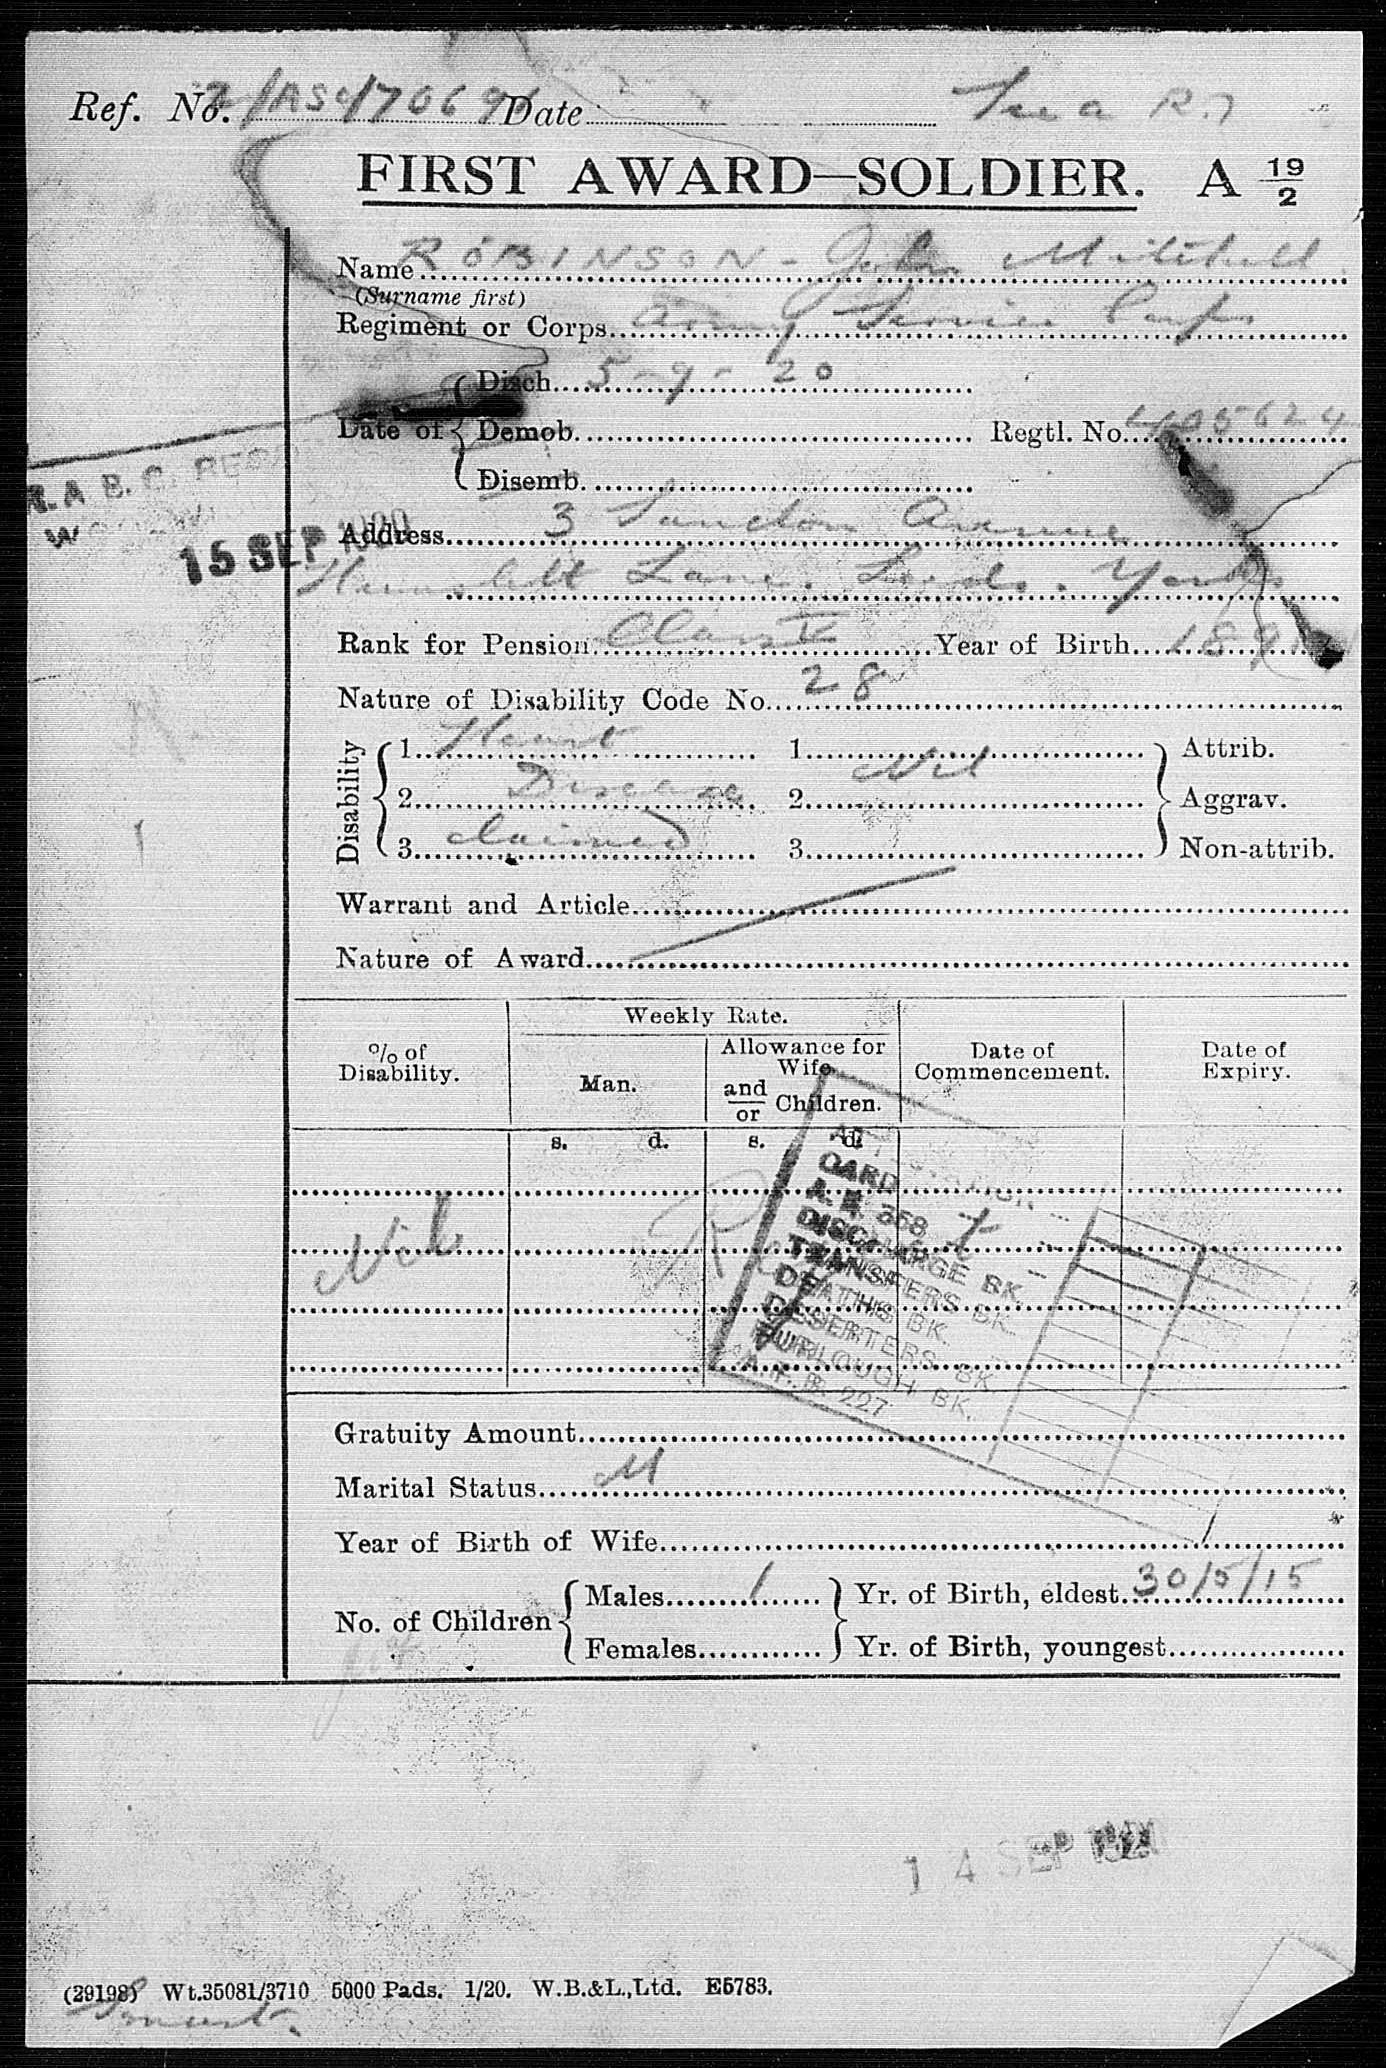 Ref. No. /ASC/7069 Date
FIRST AWARD—SOLDIER. A 19/2
Name ROBINSON - John Mitchell
(Surname first)
Regiment or Corps Army Service Corps
Date of { Disch. 5-9-20
Demob. Regtl. No. 405624
Disemb.
R.A.S.C. RECO
WOOLWI
15 SEP 1920
Address 3 Avenue
Hunslett Lane. Leeds. Yorks
Rank for Pension Class V Year of Birth 189
Nature of Disability Code No. 28
Disability { 1. Heart 1. } Attrib.
2. Disease 2. Nil Aggrav.
3. claimed 3. Non-attrib.
Warrant and Article
Nature of Award
% of Disability. Weekly Rate. Man. Allowance for Wife and/or Children. Date of Commencement. Date of Expiry.
s. d. s. d.
Nil
CARD
A. B. 358
DISCHARGE BK.
TRANSFERS BK.
DEATHS BK.
DESERTERS BK
FURLOUGH BK.
A.F. B. 227
Gratuity Amount
Marital Status M
Year of Birth of Wife
No. of Children { Males 1 } Yr. of Birth, eldest 30/5/15
Females Yr. of Birth, youngest
14 SEP
(29198) Wt.35081/3710 5000 Pads. 1/20. W.B.&L.,Ltd. E5783.